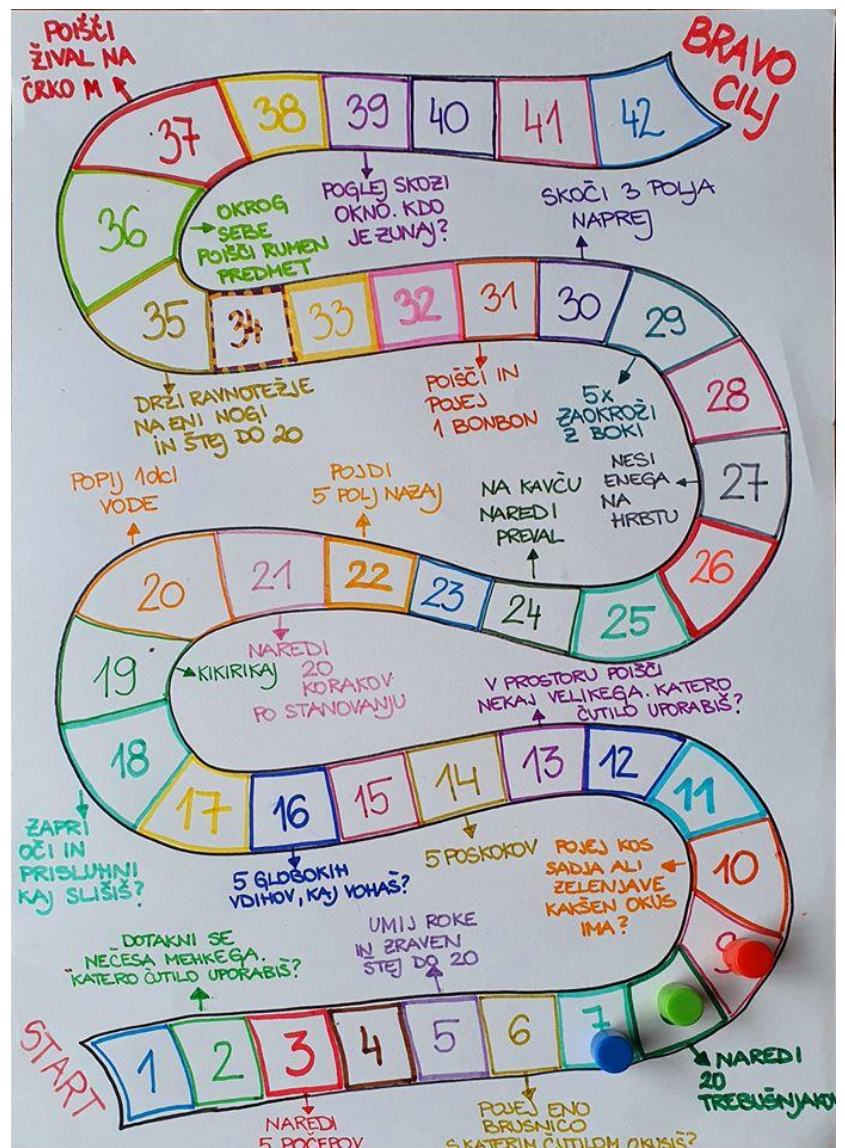 POIŠČI
ŽIVAL NA
ČRKO M
BRAVO
CILJ
37
38
39
40
41
42
36
OKROG
SEBE
POIŠČI RUMEN
PREDMET
POGLEJ SKOZI
OKNO. KDO
JE ZUNAJ?
SKOČI 3 POLJA
NAPREJ
35
34
33
32
31
30
29
28
27
26
DRŽI RAVNOTEŽJE
NA ENI NOGI
IN ŠTEJ DO 20
POIŠČI IN
POJEJ
1 BONBON
5X
ZAOKROŽI
Z BOKI
NESI
ENEGA
NA
HRBTU
POPIJ 1dcl
VODE
POJDI
5 POLJ NAZAJ
NA KAVČU
NAREDI
PREVAL
20
21
22
23
24
25
19
KIKIRIKAJ
NAREDI
20
KORAKOV
PO STANOVANJU
V PROSTORU POIŠČI
NEKAJ VELIKEGA. KATERO
ČUTILO UPORABIŠ?
18
17
16
15
14
13
12
11
10
9
ZAPRI
OČI IN
PRISLUHNI
KAJ SLIŠIŠ?
5 GLOBOKIH
VDIHOV, KAJ VOHAŠ?
5 POSKOKOV
POJEJ KOS
SADJA ALI
ZELENJAVE
KAKŠEN OKUS
IMA?
DOTAKNI SE
NEČESA MEHKEGA.
KATERO ČUTILO UPORABIŠ?
UMIJ ROKE
IN ZRAVEN
ŠTEJ DO 20
START
1
2
3
4
5
6
7
NAREDI
20
TREBUŠNJAKOV
NAREDI
5 POČEPOV
POJEJ ENO
BRUSNICO
S KATERIM ČUTILOM OKUSIŠ?